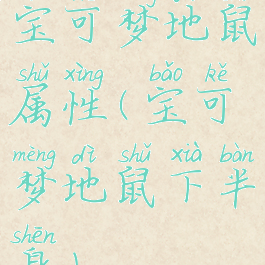 宝可梦地鼠
shǔ xìng bǎo kě
属性(宝可
mèng dì shǔ xià bàn
梦地鼠下半
shēn
身)